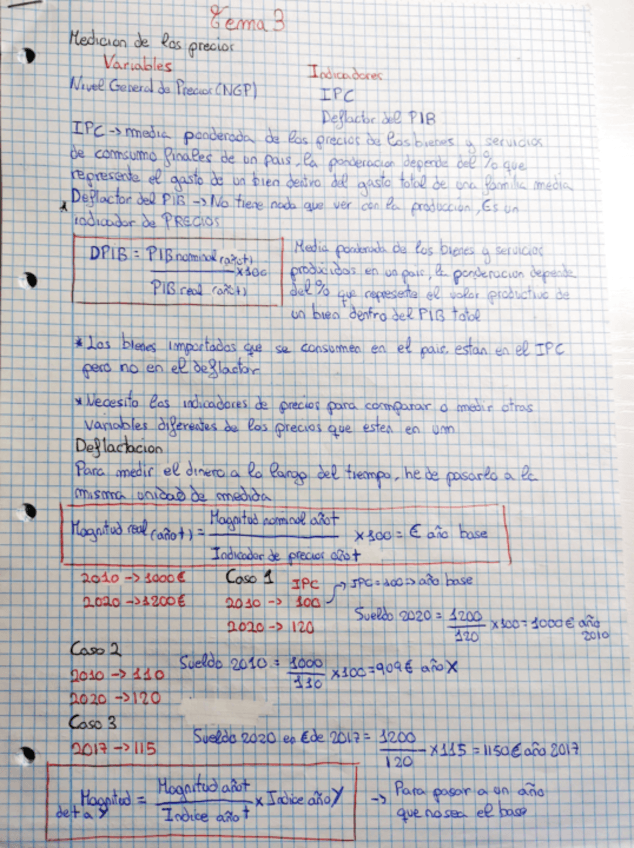 Tema 3
Medicion de los precios
Variables
Indicadores
Nivel General de Precios (NGP)
IPC
Deflactor del PIB
IPC -> media ponderada de los precios de los bienes y servicios
de comsumo finales de un pais, la ponderacion depende del % que
represente el gasto de un bien dentro del gasto total de una familia media
Deflactor del PIB -> No tiene nada que ver con la producción, Es un
indicador de PRECIOS
DPIB = PIB nominal (año t) x100
PIB real (año t)
Media ponderada de los bienes y servicios
producidos en un pais, la ponderacion depende
del % que represente el valor productivo de
un bien dentro del PIB total
* Los bienes importados que se consumen en el pais, estan en el IPC
pero no en el deflactor
* Necesito los indicadores de precios para comparar o medir otras
variables diferentes de los precios que esten en um
Deflactacion
Para medir el dinero a lo largo del tiempo, he de pasarlo a la
misma unidad de medida
Magnitud real (año t) = Magnitud nominal año t x100 = € año base
Indicador de precios año t
2010 -> 1000€
2020 -> 1200€
Caso 1 IPC
2010 -> 100
2020 -> 120
IPC=100 => año base
Sueldo 2020 = 1200 x100 = 1000€ año 2010
120
Caso 2
2010 -> 110
2020 -> 120
Sueldo 2010 = 1000 x100 = 909€ año X
110
Caso 3
2017 -> 115
Sueldo 2020 en € de 2017 = 1200 x115 = 1150€ año 2017
120
Magnitud = Magnitud año t x Indice año Y
de t a Y Indice año t
-> Para pasar a un año
que no sea el base